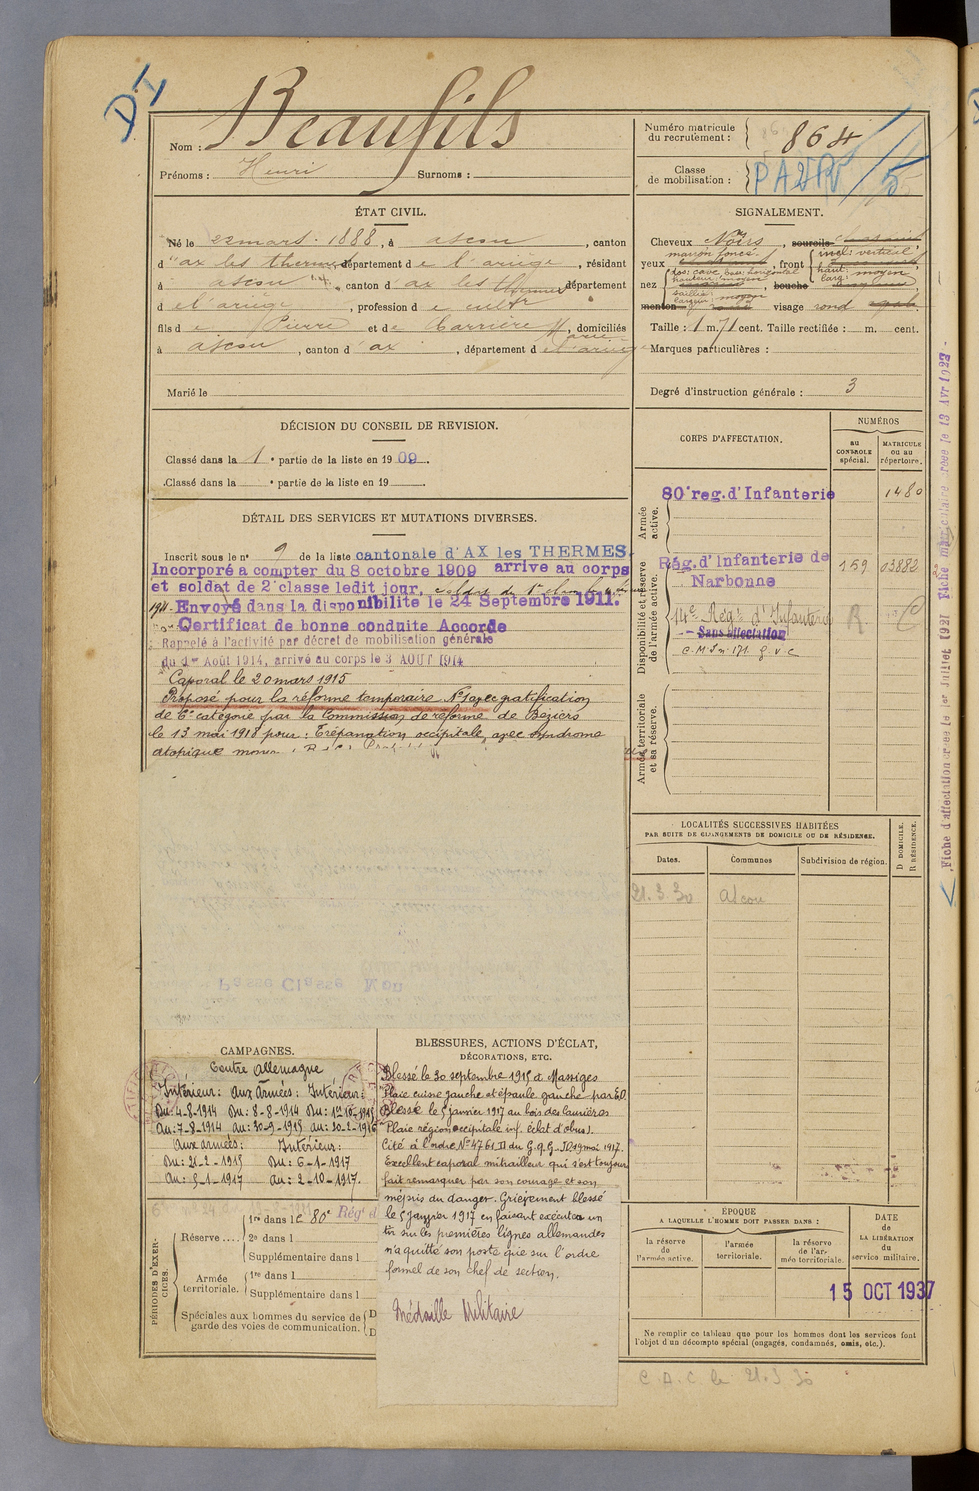 D1
Nom : Beaufils
Prénoms : Henri Surnoms :
Numéro matricule du recrutement : 864
Classe de mobilisation :
ÉTAT CIVIL.
Né le 22 mars 1888, à ascou, canton
d'ax les thermes département de l'ariège, résidant
à ascou, canton d'ax les thermes département
d e l'ariège, profession de cultr
fils de Pierre et de Carrière Marie, domiciliés
à ascou, canton d'ax, département de l'ariège
Marié le
SIGNALEMENT.
Cheveux Noirs, sourcils chatains
yeux marron foncé, front incl: vertical haut: moyen larg: moyen
nez dos: cave, bas: horizontal hauteur: moyen saillie: largeur: moyen bouche moyenne
menton rond visage rond
Taille : 1 m. 71 cent. Taille rectifiée : m. cent.
Marques particulières :
Degré d'instruction générale : 3
DÉCISION DU CONSEIL DE REVISION.
Classé dans la 1e partie de la liste en 1909.
Classé dans la e partie de la liste en 19
DÉTAIL DES SERVICES ET MUTATIONS DIVERSES.
Inscrit sous le n° 9 de la liste cantonale d'AX les THERMES
Incorporé a compter du 8 octobre 1909 arrivé au corps
et soldat de 2e classe ledit jour, soldat de 1e classe le
Envoyé dans la disponibilité le 24 Septembre 1911.
Certificat de bonne conduite Accordé
Rappelé à l'activité par décret de mobilisation générale
du 1er Août 1914, arrivé au corps le 3 AOUT 1914
Caporal le 20 mars 1915
Proposé pour la réforme temporaire N°1 avec gratification
de 6e catégorie par la Commission de réforme de Béziers
le 13 mai 1918 pour : Trépanation occipitale, avec syndrome
atopique
Passé Classé Non
CORPS D'AFFECTATION.
NUMÉROS
au CONTROLE spécial.
MATRICULE ou au répertoire.
Armée active.
80e reg. d'Infanterie 1480
Disponibilité et réserve de l'armée active.
Rég. d'Infanterie de Narbonne 159 03882
14e Régt d'Infanterie R
Sans affectation
C.M.I n° 171. G.V.C
Armée territoriale et sa réserve.
LOCALITÉS SUCCESSIVES HABITÉES
PAR SUITE DE CHANGEMENTS DE DOMICILE OU DE RÉSIDENCE.
Dates. Communes Subdivision de région. D DOMICILE. R RÉSIDENCE.
21.3.30 Ascou
CAMPAGNES.
Contre Allemagne
Intérieur: Aux Armées: Intérieur:
Du: 4-8-1914 Du: 8-8-1914 Du: 1-10-1915
Au: 7-8-1914 au: 30-9-1915 au: 20-2-1916
Aux armées: Intérieur:
Du: 21-2-1915 Du: 6-1-1917
Au: 5-1-1917 au: 2-10-1917.
BLESSURES, ACTIONS D'ÉCLAT,
DÉCORATIONS, ETC.
Blessé le 30 septembre 1915 à Massiges
Plaie cuisse gauche et épaule gauche par E.O.
Blessé le 5 janvier 1917 au bois des Caurières
Plaie région occipitale inf. éclat d'obus.
Cité à l'ordre N° 4761.D du G.Q.G. 19 mai 1917.
Excellent caporal mitrailleur qui s'est toujours
fait remarquer par son courage et son
mépris du danger. Grièvement blessé
le 5 janvier 1917 en faisant exécuter un
tir sur les premières lignes allemandes
n'a quitté son poste que sur l'ordre
formel de son chef de section.
Médaille Militaire
PÉRIODES D'EXERCICES.
Réserve.... 1re dans le 80e Rég. d
2e dans l
Supplémentaire dans l
Armée territoriale. 1re dans l
Supplémentaire dans l
Spéciales aux hommes du service de garde des voies de communication. D
D
ÉPOQUE
A LAQUELLE L'HOMME DOIT PASSER DANS :
la réserve de l'armée active.
l'armée territoriale.
la réserve de l'armée territoriale.
DATE de LA LIBÉRATION du service militaire.
15 OCT 1937
Ne remplir ce tableau que pour les hommes dont les services font
l'objet d'un décompte spécial (engagés, condamnés, omis, etc.).
C.A.C. le 21.3.30
Fiche d'affectation créée le 1er Juillet 1921 Fiche matriculaire créée le 13 Avr 1923